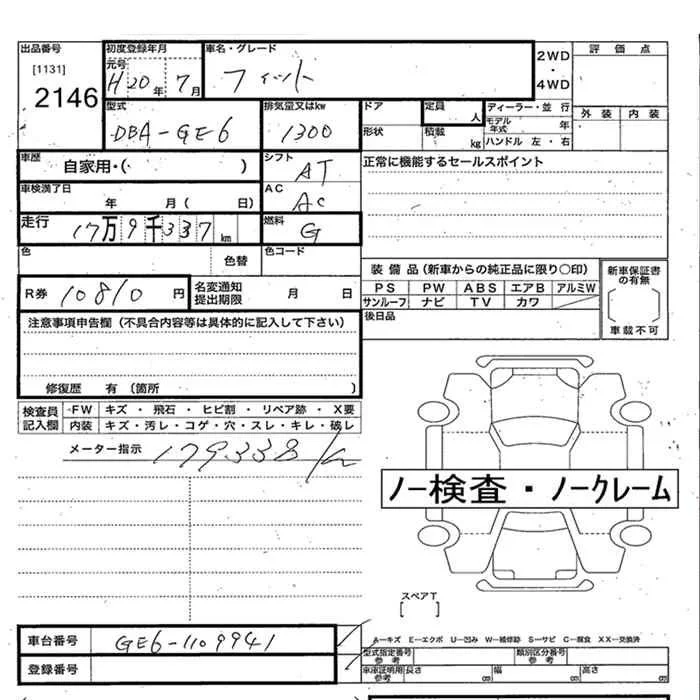 出品番号 初度登録年月 車名・グレード 2WD・4WD 評価点
[1131] 元号
2146 H20年 7月 フィット
型式 排気量又はkw ドア 定員 人 ディーラー・並行 外装 内装
DBA-GE6 1300 形状 積載 kg モデル年式 年
ハンドル 左・右
車歴 自家用・( ) シフト AT 正常に機能するセールスポイント
車検満了日 年 月( 日) AC AC
走行 17万9千337km 燃料 G
色 色替 色コード
装備品(新車からの純正品に限り○印) 新車保証書の有無
R券 10810円 名変通知提出期限 月 日 PS PW ABS エアB アルミW
サンルーフ ナビ TV カワ 車載不可
注意事項申告欄(不具合内容等は具体的に記入して下さい) 後日品
修復歴 有 (箇所 )
検査員記入欄 FW キズ・飛石・ヒビ割・リペア跡・X要
内装 キズ・汚レ・コゲ・穴・スレ・キレ・破レ
メーター指示 179338km
ノー検査・ノークレーム
スペアT
[ ]
車台番号 GE6-1109941 A-キズ E-エクボ U-凹み W-補修跡 S-サビ C-腐食 XX-交換済
型式指定番号 参考 類別区分番号 参考
登録番号 車庫証明用参考 長さ 幅 高さ